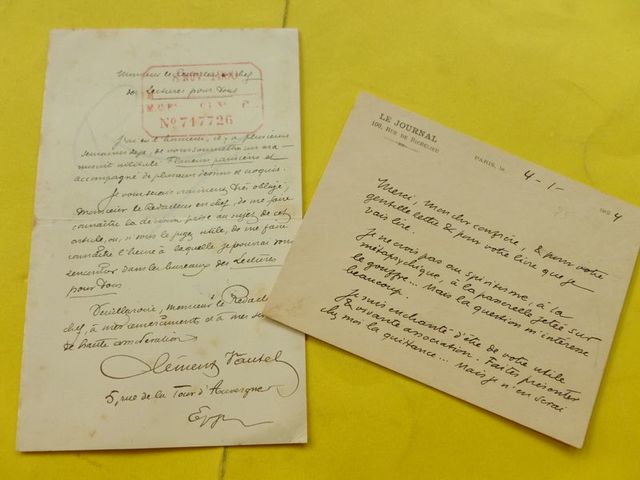 Monsieur le Rédacteur en chef
des Lectures pour Tous
No 717726
J'ai eu l'honneur, il y a plusieurs
semaines déjà, de vous soumettre un ma-
nuscrit intitulé parisiens et
accompagné de plusieurs dessins et croquis.
Je vous serais vraiment très obligé,
monsieur le Rédacteur en chef, de me faire
connaître la décision prise au sujet de cet
article, ou, si vous le jugez utile, de me faire
connaître l'heure à laquelle je pourrai vous
rencontrer dans les bureaux des Lectures
pour Tous
Veuillez croire, monsieur le Rédac
chef, à mes remerciements et à mes
de haute considération
Clément Vautel
5, rue de la Tour d'Auvergne
LE JOURNAL
100, RUE DE RICHELIEU
PARIS, LE 4-1- 192 4
Merci, mon cher confrère, & pour votre
gentille lettre & pour votre livre que je
vais lire.
Je ne crois pas au spiritisme, à la
métapsychique, à la passerelle jetée sur
le gouffre... Mais la question m'intéresse
beaucoup.
Je suis enchanté d'être de votre utile
& vivante association. Faites présenter
chez moi la quittance... Mais je n'en serai